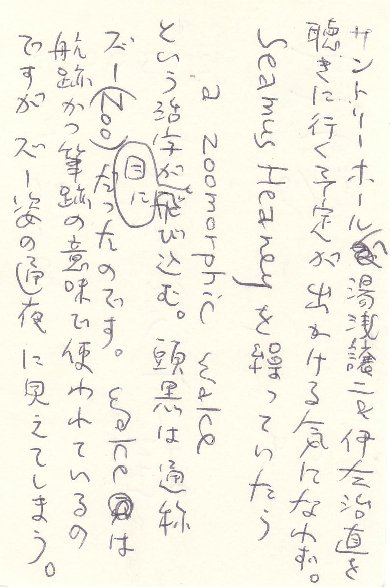 サントリーホールへ湯浅譲二を伊左治直を
聴きに行く予定が出かける気になれず。
Seamus Heaney を繰っていたら
a zoomorphic wake
という活字が目に飛び込む。頭黒は通称
ズー(Zoo)だったのです。wakeは
航跡かつ筆跡の意味で使われているの
ですが ズー姿の通夜に見えてしまう。